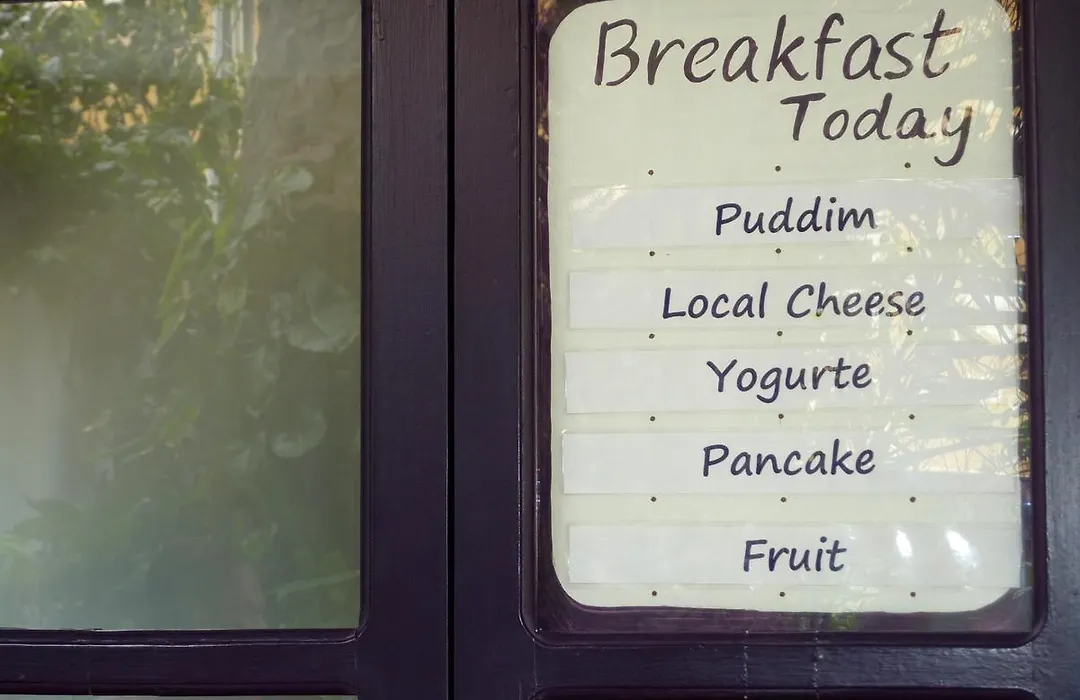 Breakfast
Today
Puddim
Local Cheese
Yogurte
Pancake
Fruit